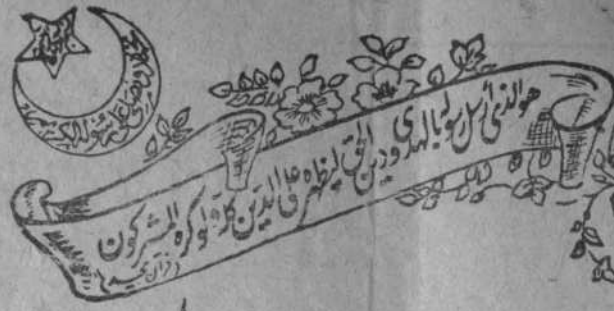 نحمده ونصلی علی رسوله الکریم
هو الذی ارسل رسوله بالهدی ودین الحق لیظهره علی الدین کله ولو کره المشرکون
(قرآن مجید)